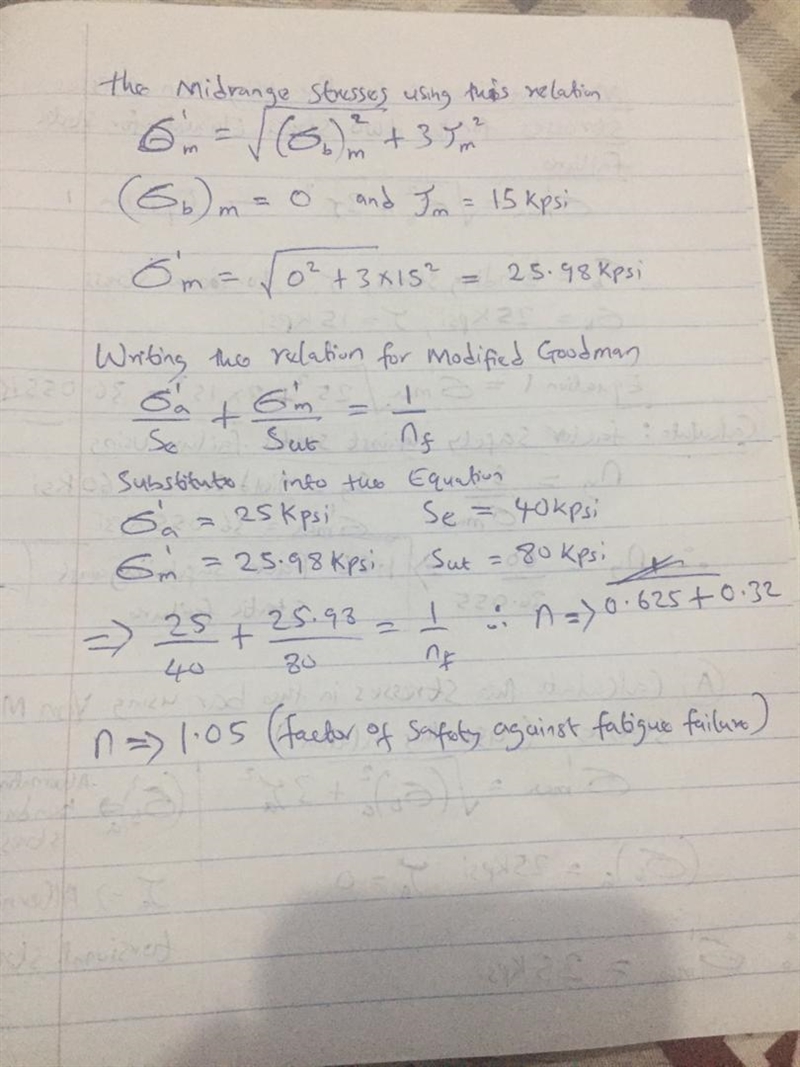 the Midrange stresses using this relation
σ'm = √(σb)²m + 3τm²
(σb)m = 0 and τm = 15 Kpsi
σ'm = √0² + 3×15² = 25.98 Kpsi
Writing the relation for Modified Goodman
σ'a/Se + σ'm/Sut = 1/nf
Substitute into the Equation
σ'a = 25 Kpsi Se = 40 kpsi
σ'm = 25.98 Kpsi Sut = 80 Kpsi
=> 25/40 + 25.98/80 = 1/nf ∴ n => 0.625 + 0.32
n => 1.05 (factor of safety against fatigue failure)